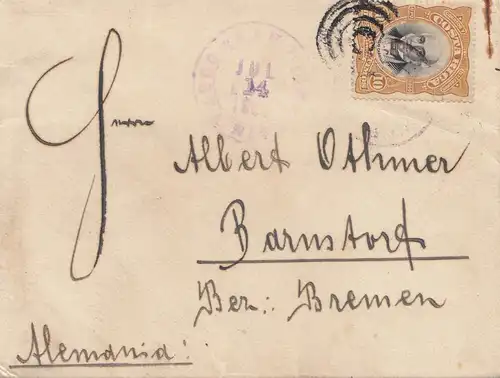 COSTA RICA
10
JUL
14
Herrn
Albert Othmer
Barnstorf
Bez: Bremen
Alemania!